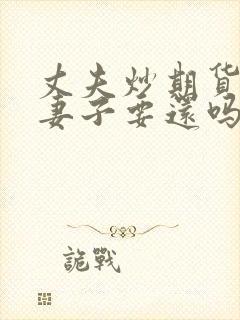 丈夫炒期货
妻子要還吗
詭戰